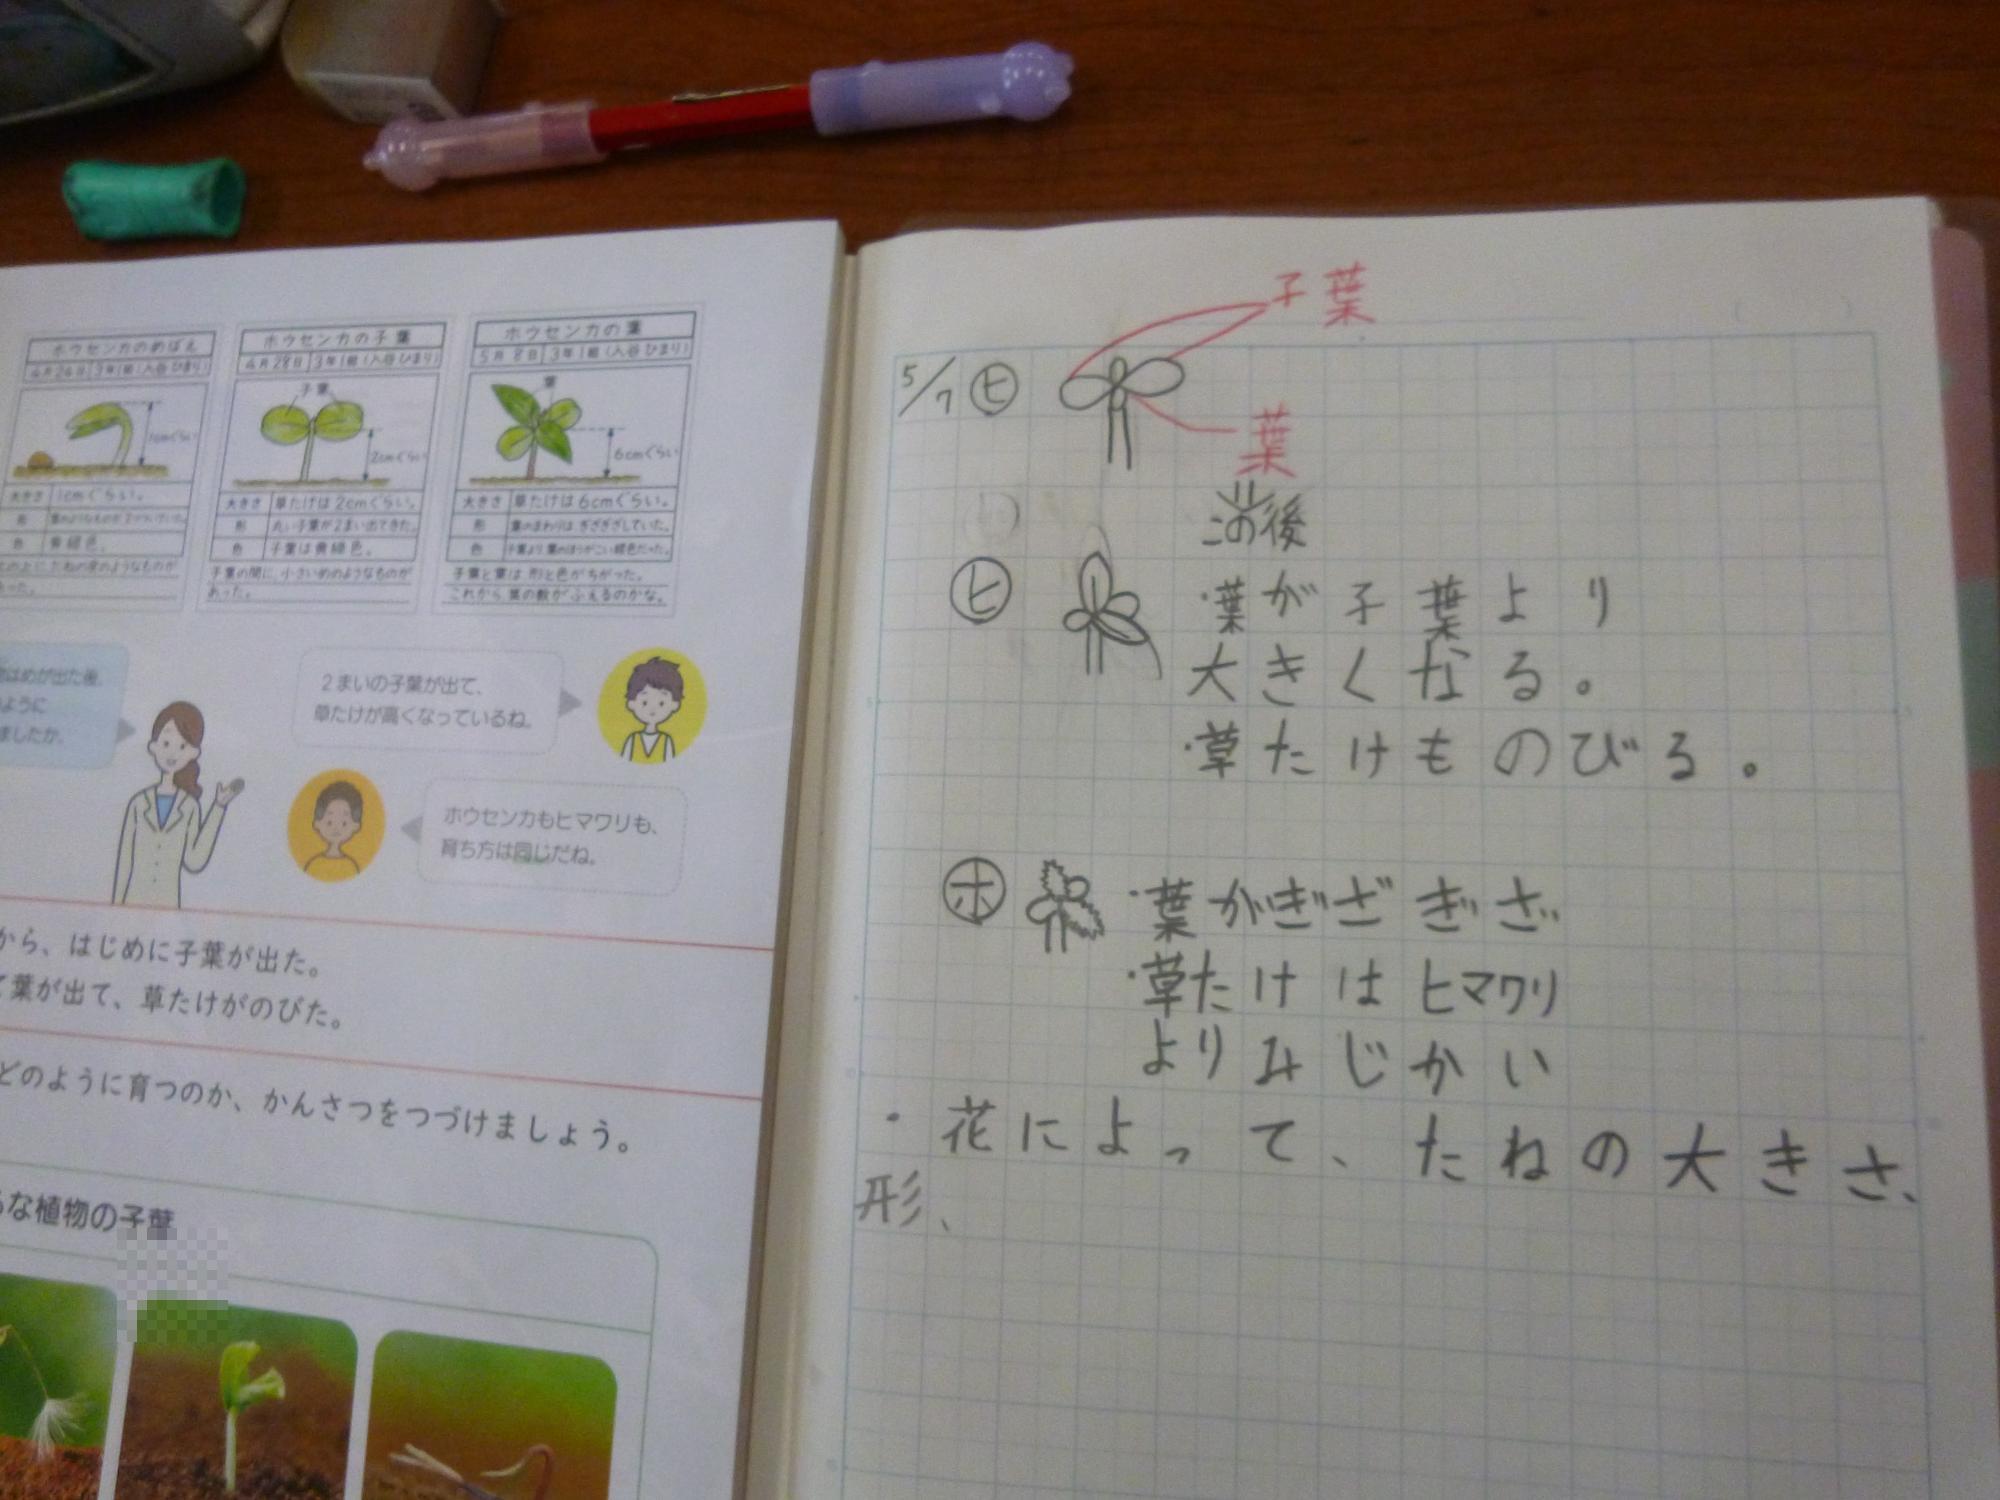 ホウセンカのめばえ
4月24日 3年1組(入谷ひまり)
1cmぐらい
大きさ 1cmぐらい。
形
色 黄緑色。
ホウセンカの子葉
4月28日 3年1組(入谷ひまり)
子葉
2cmぐらい
大きさ 草たけは2cmぐらい。
形 丸い子葉が2まい出てきた。
色 子葉は黄緑色。
子葉の間に、小さいめのようなものが
あった。
ホウセンカの葉
5月8日 3年1組(入谷ひまり)
葉
6cmぐらい
大きさ 草たけは6cmぐらい。
形 葉のまわりはぎざぎざしていた。
色 子葉より葉のほうがこい緑色だった。
子葉と葉は、形と色がちがった。
これから、葉の数がふえるのかな。
はめが出た後、
ように
ましたか。
2まいの子葉が出て、
草たけが高くなっているね。
ホウセンカもヒマワリも、
育ち方は同じだね。
から、はじめに子葉が出た。
て葉が出て、草たけがのびた。
どのように育つのか、かんさつをつづけましょう。
な植物の子葉
子葉
5/7 ヒ
葉
この後
ヒ
・葉が子葉より
大きくなる。
・草たけものびる。
ホ
・葉がぎざぎざ
・草たけはヒマワリ
よりみじかい
・花によって、たねの大きさ、
形、